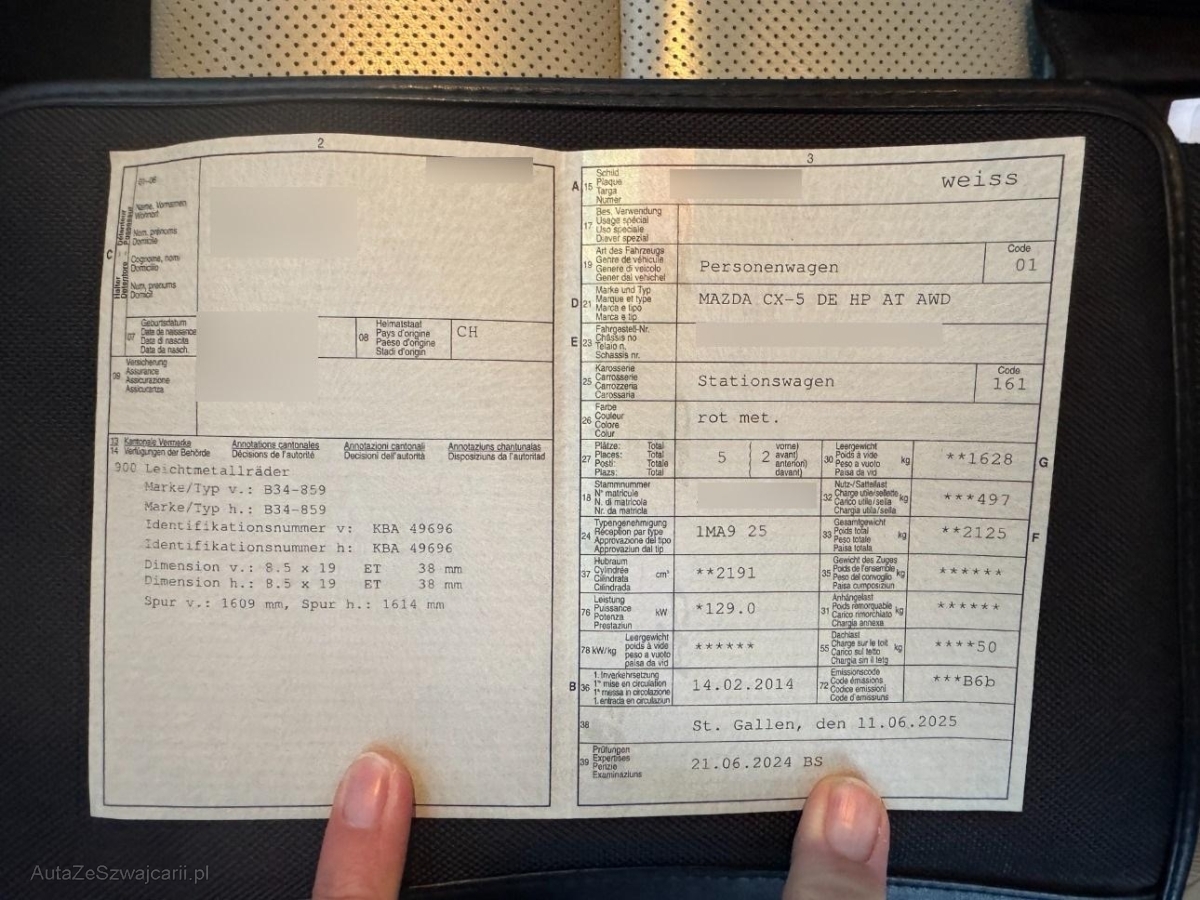 2
01-06
Name, Vornamen
Wohnort
Nom, prénoms
Domicile
Cognome, nomi
Domicilio
Num, prenums
Domicil
C
Halter
Détenteur
Detentore
Possessur
07
Geburtsdatum
Date de naissance
Data di nascita
Data da nasch.
08
Heimatstaat
Pays d'origine
Paese d'origine
Stadi d'origin
CH
09
Versicherung
Assurance
Assicurazione
Assicuranza
13
14
Kantonale Vermerke
Verfügungen der Behörde
Annotations cantonales
Décisions de l'autorité
Annotazioni cantonali
Decisioni dell'autorità
Annotaziuns chantunalas
Disposiziuns da l'autoritad
900 Leichtmetallräder
Marke/Typ v.: B34-859
Marke/Typ h.: B34-859
Identifikationsnummer v: KBA 49696
Identifikationsnummer h: KBA 49696
Dimension v.: 8.5 x 19 ET 38 mm
Dimension h.: 8.5 x 19 ET 38 mm
Spur v.: 1609 mm, Spur h.: 1614 mm
3
A 15
Schild
Plaque
Targa
Numer
weiss
17
Bes. Verwendung
Usage spécial
Uso speciale
Diever spezial
19
Art des Fahrzeugs
Genre de véhicule
Genere di veicolo
Gener dal vehichel
Personenwagen
Code
01
D 21
Marke und Typ
Marque et type
Marca e tipo
Marca e tip
MAZDA CX-5 DE HP AT AWD
E 23
Fahrgestell-Nr.
Châssis no
Telaio n.
Schassis nr.
25
Karosserie
Carrosserie
Carrozzeria
Carossaria
Stationswagen
Code
161
26
Farbe
Couleur
Colore
Colur
rot met.
27
Plätze: Total
Places: Total
Posti: Totale
Plazs: Total
5
2
vorne)
avant)
anteriori)
davant)
30
Leergewicht
Poids à vide
Peso a vuoto
Paisa da vid
kg
**1628
G
18
Stammnummer
N° matricule
N. di matricola
Nr. da matricla
32
Nutz-/Sattellast
Charge utile/sellette
Carico utile/sella
Chargia utila/sella
kg
***497
24
Typengenehmigung
Réception par type
Approvazione del tipo
Approvaziun dal tip
1MA9 25
33
Gesamtgewicht
Poids total
Peso totale
Paisa totala
kg
**2125
F
37
Hubraum
Cylindrée
Cilindrata
Cilindrada
cm³
**2191
35
Gewicht des Zuges
Poids de l'ensemble
Peso del convoglio
Paisa cumposiziun
kg
******
76
Leistung
Puissance
Potenza
Prestaziun
kW
*129.0
31
Anhängelast
Poids remorquable
Carico rimorchiato
Chargia annexa
kg
******
78 kW/kg
Leergewicht
poids à vide
peso a vuoto
paisa da vid
******
55
Dachlast
Charge sur le toit
Carico sul tetto
Chargia sin il tetg
kg
****50
B 36
1. Inverkehrsetzung
1re mise en circulation
1a messa in circolazione
1. entrada en circulaziun
14.02.2014
72
Emissionscode
Code émissions
Codice emissioni
Code d'emissiuns
***B6b
38
St. Gallen, den 11.06.2025
39
Prüfungen
Expertises
Perizie
Examinaziuns
21.06.2024 BS
AutaZeSzwajcarii.pl